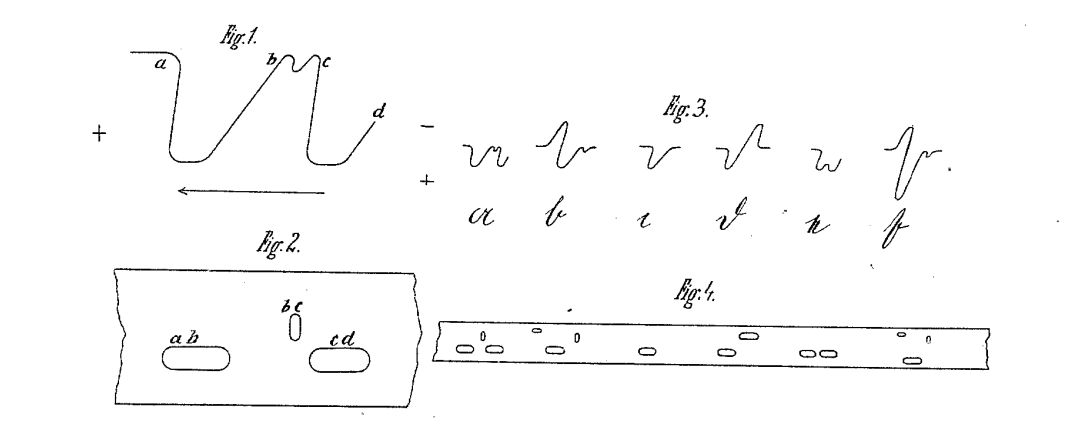 Fig. 1.
a b c d
+
Fig. 3.
−
+
a b i d n f
Fig. 2.
ab bc cd
Fig. 4.